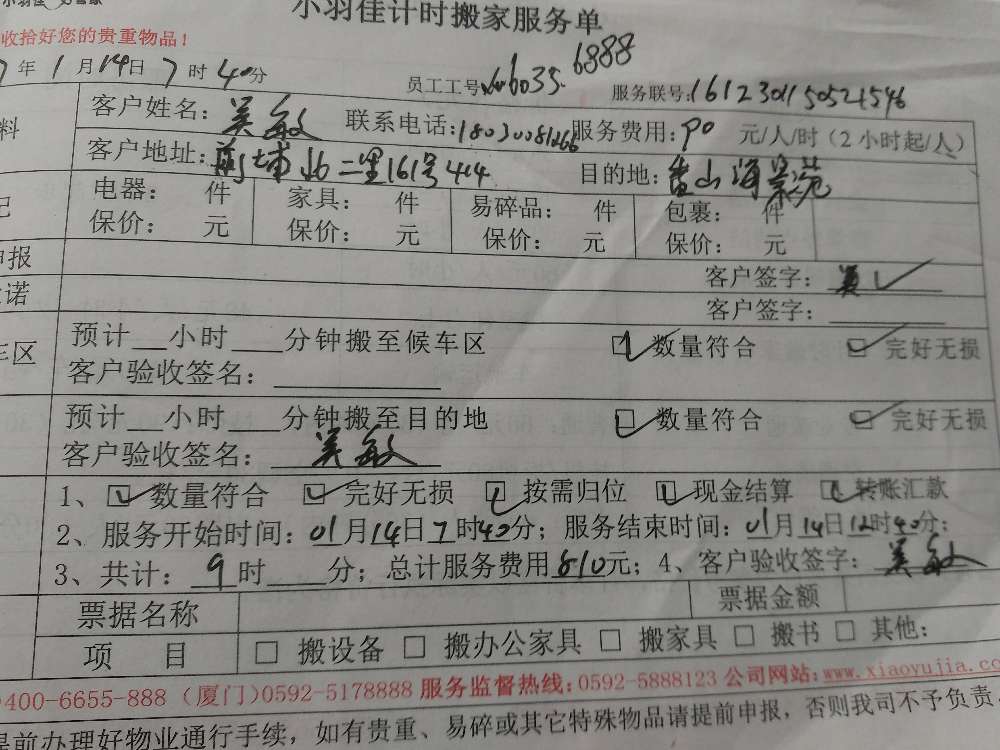 小羽佳计时搬家服务单
收拾好您的贵重物品！
7年1月14日7时40分
员工工号 6035 6888 服务联号:161230115052
料 客户姓名：吴敏 联系电话:18030081266 服务费用：90 元/人/时（2小时起/人）
客户地址：前埔北二里161号414 目的地：香山海景苑
记 电器： 件 家具： 件 易碎品： 件 包裹： 件
保价： 元 保价： 元 保价： 元 保价： 元
申报 客户签字：吴
诺 客户签字：
车区 预计 小时 分钟搬至候车区 ☑数量符合 ☑完好无损
客户验收签名：
预计 小时 分钟搬至目的地 ☑数量符合 ☑完好无损
客户验收签名：吴敏
1、☑数量符合 ☑完好无损 ☑按需归位 ☑现金结算 ☑转账汇款
2、服务开始时间：01月14日7时40分；服务结束时间：01月14日12时40分；
3、共计：9时 分；总计服务费用810元；4、客户验收签字：吴敏
票据名称 票据金额
项 目 □ 搬设备 □ 搬办公家具 □ 搬家具 □ 搬书 □ 其他：
400-6655-888（厦门）0592-5178888 服务监督热线：0592-5888123 公司网站：www.xiaoyujia.co
提前办理好物业通行手续，如有贵重、易碎或其它特殊物品请提前申报，否则我司不予负责。